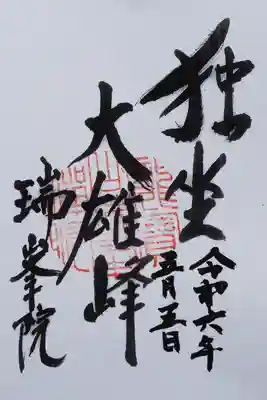 独坐
大雄峰
瑞峯院
令和六年
五月五日